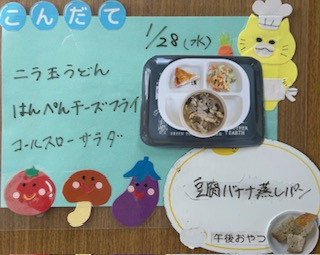 こんだて
1/28(水)
ニラ玉うどん
はんぺんチーズフライ
コールスローサラダ
豆腐バナナ蒸しパン
午後おやつ